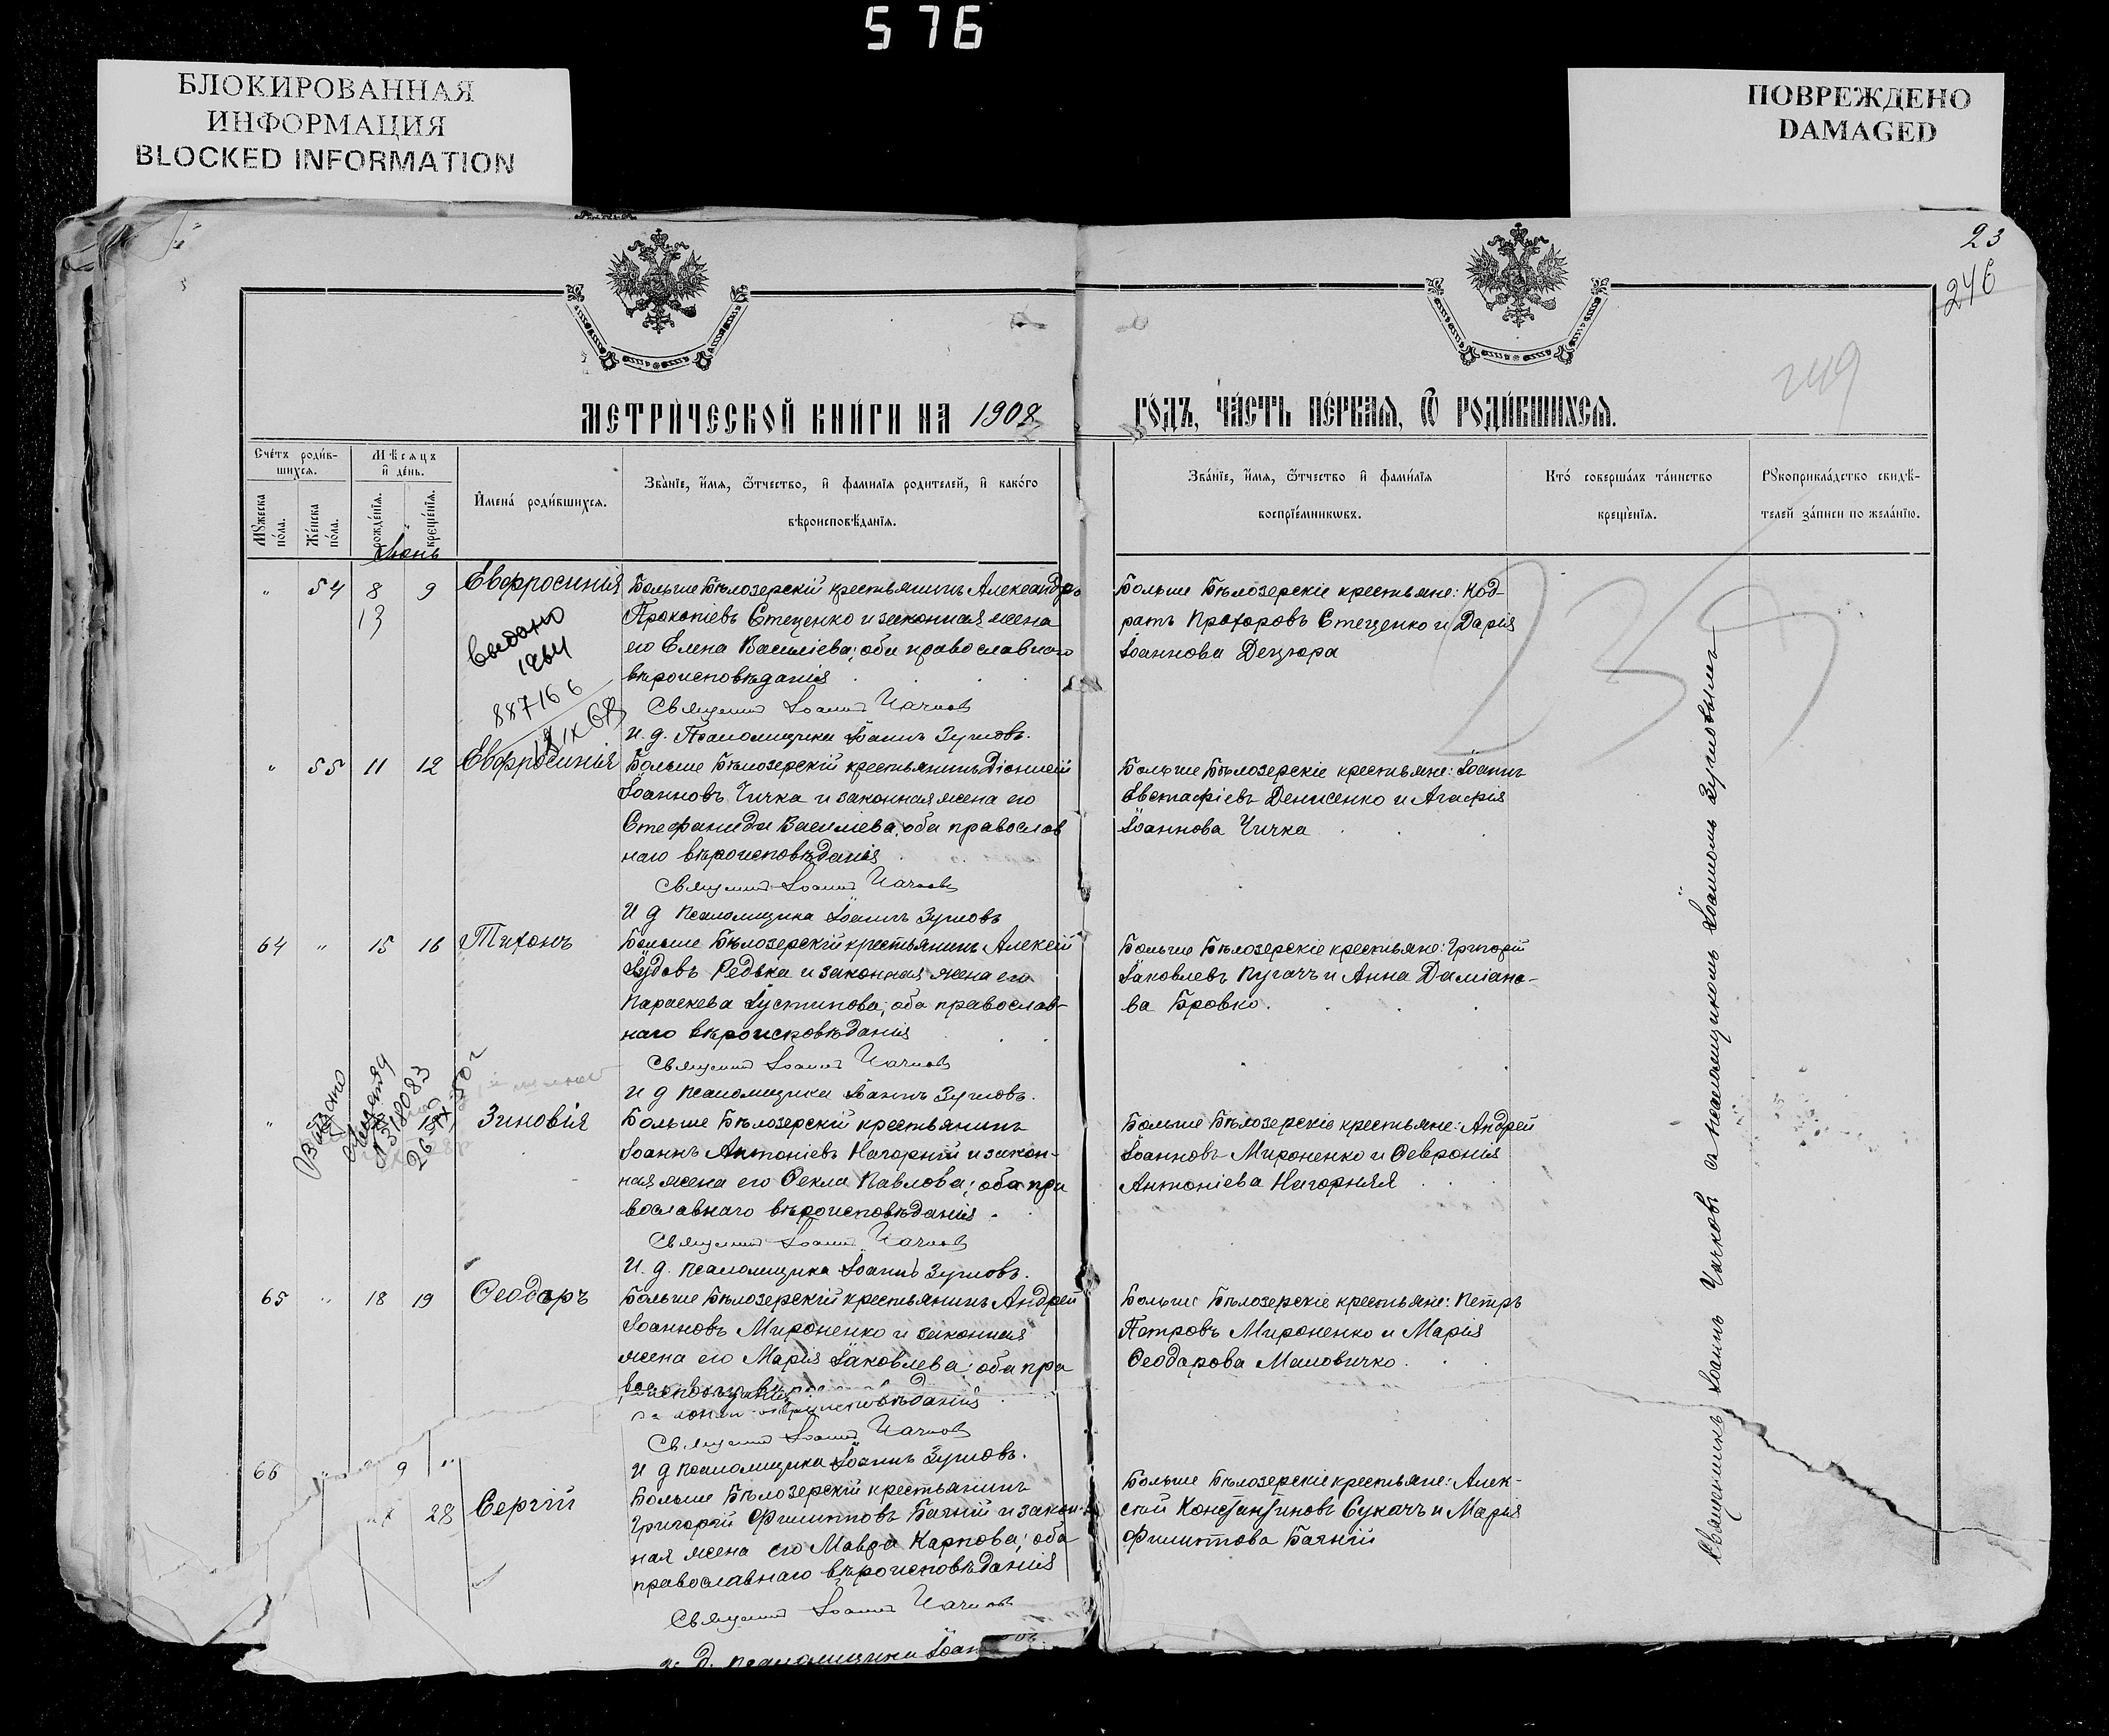 576
БЛОКИРОВАННАЯ
ИНФОРМАЦИЯ
BLOCKED INFORMATION
ПОВРЕЖДЕНО
DAMAGED
23
246
249
МЕТРИЧЕСКОЙ КНИГИ НА 1908
ГОДЪ, ЧАСТЬ ПЕРВАЯ, Ѿ РОДИВШИХСЯ.
Счетъ родив-
шихся.
Мѣсяцъ
и день.
Мужеска
пола.
Женска
пола.
рожденія.
крещенія.
Имена родившихся.
Званіе, имя, ѿтчество, и фамилія родителей, и какого
вѣроисповѣданія.
Званіе, имя, ѿтчество и фамилія
воспріемниковъ.
Кто совершалъ таинство
крещенія.
Рукоприкладство свидѣ-
телей записи по желанію.
Іюнь
" 54 8 9 Евфросинія
13
Больше Бѣлозерскій крестьянинъ Александръ
Прокопіевъ Стеценко и законная жена
его Елена Василіева; оба православнаго
вѣроисповѣданія
Священникъ Іоаннъ Чачковъ
И. д. Псаломщика Іоаннъ Зумовъ.
Больше Бѣлозерскіе крестьяне: Код-
ратъ Прохоровъ Стеценко и Дарія
Іоаннова Децюра
выдано
1964
887166
" 55 11 12 Евфросинія
Больше Бѣлозерскій крестьянинъ Діонисій
Іоанновъ Чичка и законная жена его
Стефанида Василіева; оба православ
наго вѣроисповѣданія
Священникъ Іоаннъ Чачковъ
И д псаломщика Іоаннъ Зумовъ
Больше Бѣлозерскіе крестьяне: Іоаннъ
Евстафіевъ Денисенко и Агафія
Іоаннова Чичка
64 " 15 16 Тихонъ
Больше Бѣлозерскій крестьянинъ Алексій
Іудовъ Редька и законная жена его
Параскева Іустинова; оба православ-
наго вѣроисповѣданія
Священникъ Іоаннъ Чачковъ
И д псаломщика Іоаннъ Зумовъ.
Больше Бѣлозерскіе крестьяне: Григорій
Іаковлевъ Пугачъ и Анна Даміано-
ва Бровко.
Выдано
" Зиновія
Больше Бѣлозерскій крестьянинъ
Іоаннъ Антоніевъ Нагорній и закон-
ная жена его Ѳекла Павлова; оба пра
вославнаго вѣроисповѣданія.
Священникъ Іоаннъ Чачковъ
И. д. псаломщика Іоаннъ Зумовъ.
Больше Бѣлозерскіе крестьяне: Андрей
Іоанновъ Мироненко и Ѳевронія
Антоніева Нагорняя
65 " 18 19 Ѳеодоръ
Больше Бѣлозерскій крестьянинъ Андрей
Іоанновъ Мироненко и законная
жена его Марія Іаковлева; оба пра
вѣроисповѣданія
Священникъ Іоаннъ Чачковъ
И д псаломщика Іоаннъ Зумовъ.
Больше Бѣлозерскіе крестьяне: Петръ
Петровъ Мироненко и Марія
Ѳеодорова Маловичко.
66 " 28 Сергій
Больше Бѣлозерскій крестьянинъ
Григорій Филипповъ Бачній и закон-
ная жена его Мавра Карпова; оба
православнаго вѣроисповѣданія
Священникъ Іоаннъ Чачковъ
и. д. псаломщика Іоаннъ
Больше Бѣлозерскіе крестьяне: Алек-
сѣй Константиновъ Сукачъ и Марія
Филиппова Бачній
Священникъ Іоаннъ Чачковъ съ псаломщикомъ Іоанномъ Зумовымъ
239